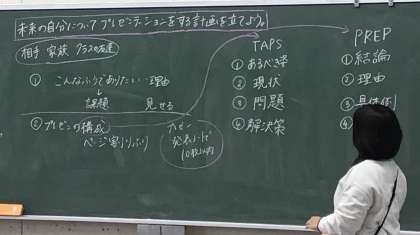 未来の自分についてプレゼンテーションをする計画を立てよう。
相手 家族 クラスの友達
① こんなふうでありたい…理由
↓
課題 見せる
② プレゼンの構成
ページ割り
プレゼン
10枚以内
TAPS
① あるべき姿
② 現状
③ 問題
④ 解決策
PREP
① 結論
② 理由
③ 具体例
④